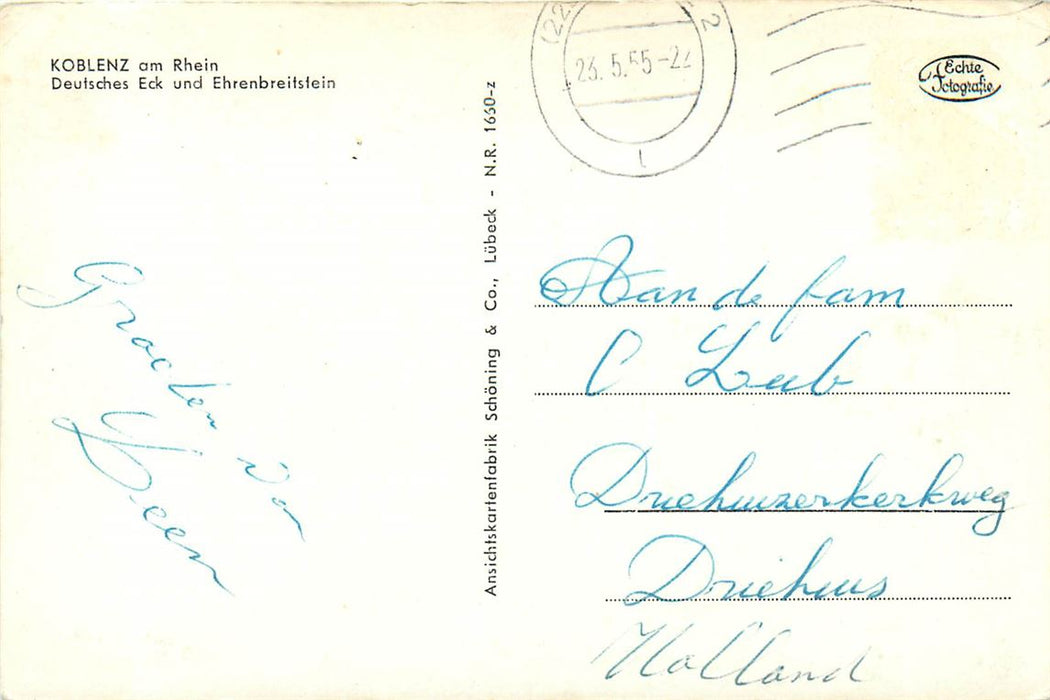 KOBLENZ am Rhein
Deutsches Eck und Ehrenbreitstein
23.5.55-2
2
Echte
Fotografie
Ansichtskartenfabrik Schöning & Co., Lübeck - N.R. 1660-z
Groeten van
Aan de fam
C Lub
Driehuizerkerkweg
Driehuis
Holland